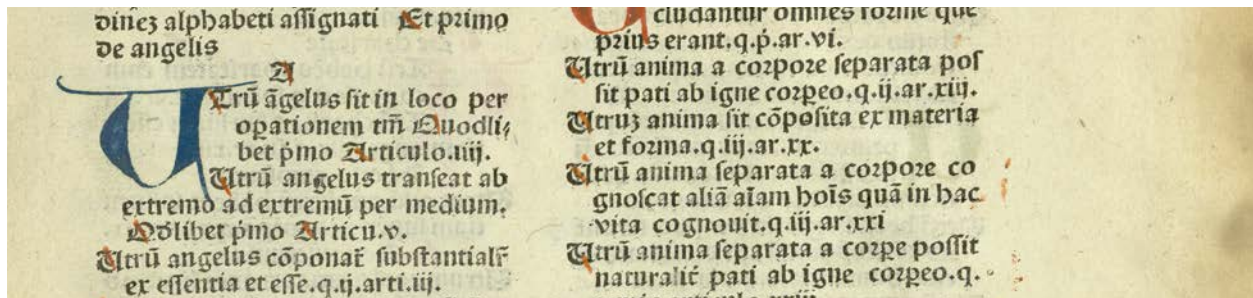 dinez alphabeti assignati Et primo
de angelis
A
Utrū āgelus sit in loco per
opationem tm̄ Quodli⸗
bet ṗmo Articulo.iiij.
Utrū angelus transeat ab
extremo ad extremū per medium.
Qdlibet ṗmo Articu.v.
Utrū angelus cōponat̄ substantialr̄
ex essentia et esse.q.ij.arti.iij.
cludantur omnes forme que
prius erant.q.ṗ.ar.vi.
Utrū anima a corpore separata pos
sit pati ab igne corpeo.q.ij.ar.xiij.
Utruz anima sit cōposita ex materia
et forma.q.iij.ar.xx.
Utrū anima separata a corpore co
gnoscat aliā aīam hoīs quā in hac
vita cognouit.q.iij.ar.xxi
Utrū anima separata a corpe possit
naturalit̄ pati ab igne corpeo.q.